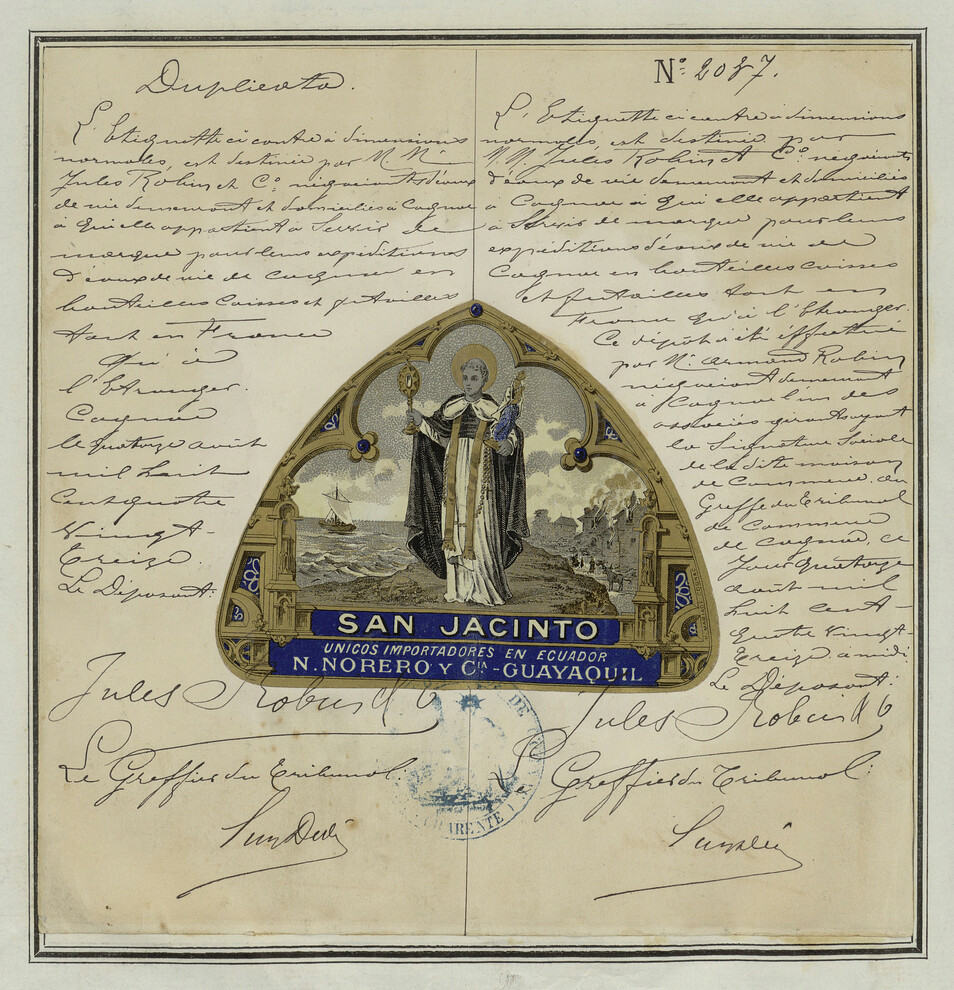 Duplicata.
L'Etiquette ci contre à dimensions
normales, est destinée par M.M.
Jules Robin et Co. négociants d'eaux
de vie demeurant et domiciliés à Cognac
à qui elle appartient à Servir de
marque pour leurs expéditions
d'eaux de vie de cognac en
bouteilles caisses et futailles
tant en France
qu'à
l'étranger.
Cognac
le quatorze août
mil huit
cent quatre
vingt-
treize
Le Déposant:
Jules Robin & Co
Le Greffier du Tribunal:
No. 2087.
L'Etiquette ci contre à dimensions
normales, est destinée par
M.M. Jules Robin et Co. négociants
d'eaux de vie demeurant et domiciliés
à Cognac à qui elle appartient
à Servir de marque pour leurs
expéditions d'eaux de vie de
Cognac en bouteilles caisses
et futailles tant en
France qu'à l'étranger.
Ce dépôt a été effectué
par M. Armand Robin
négociant demeurant
à Cognac l'un des
associés gérants ayant
la Signature Sociale
de la dite maison
de Commerce, au
Greffe du Tribunal
de Commerce
de Cognac, ce
Jour quatorze
août mil
huit cent-
quatre vingt-
treize à midi.
Le Déposant:
Jules Robin & Co
Le Greffier du Tribunal:
SAN JACINTO
UNICOS IMPORTADORES EN ECUADOR
N. NORERO Y CIA - GUAYAQUIL
CHARENTE